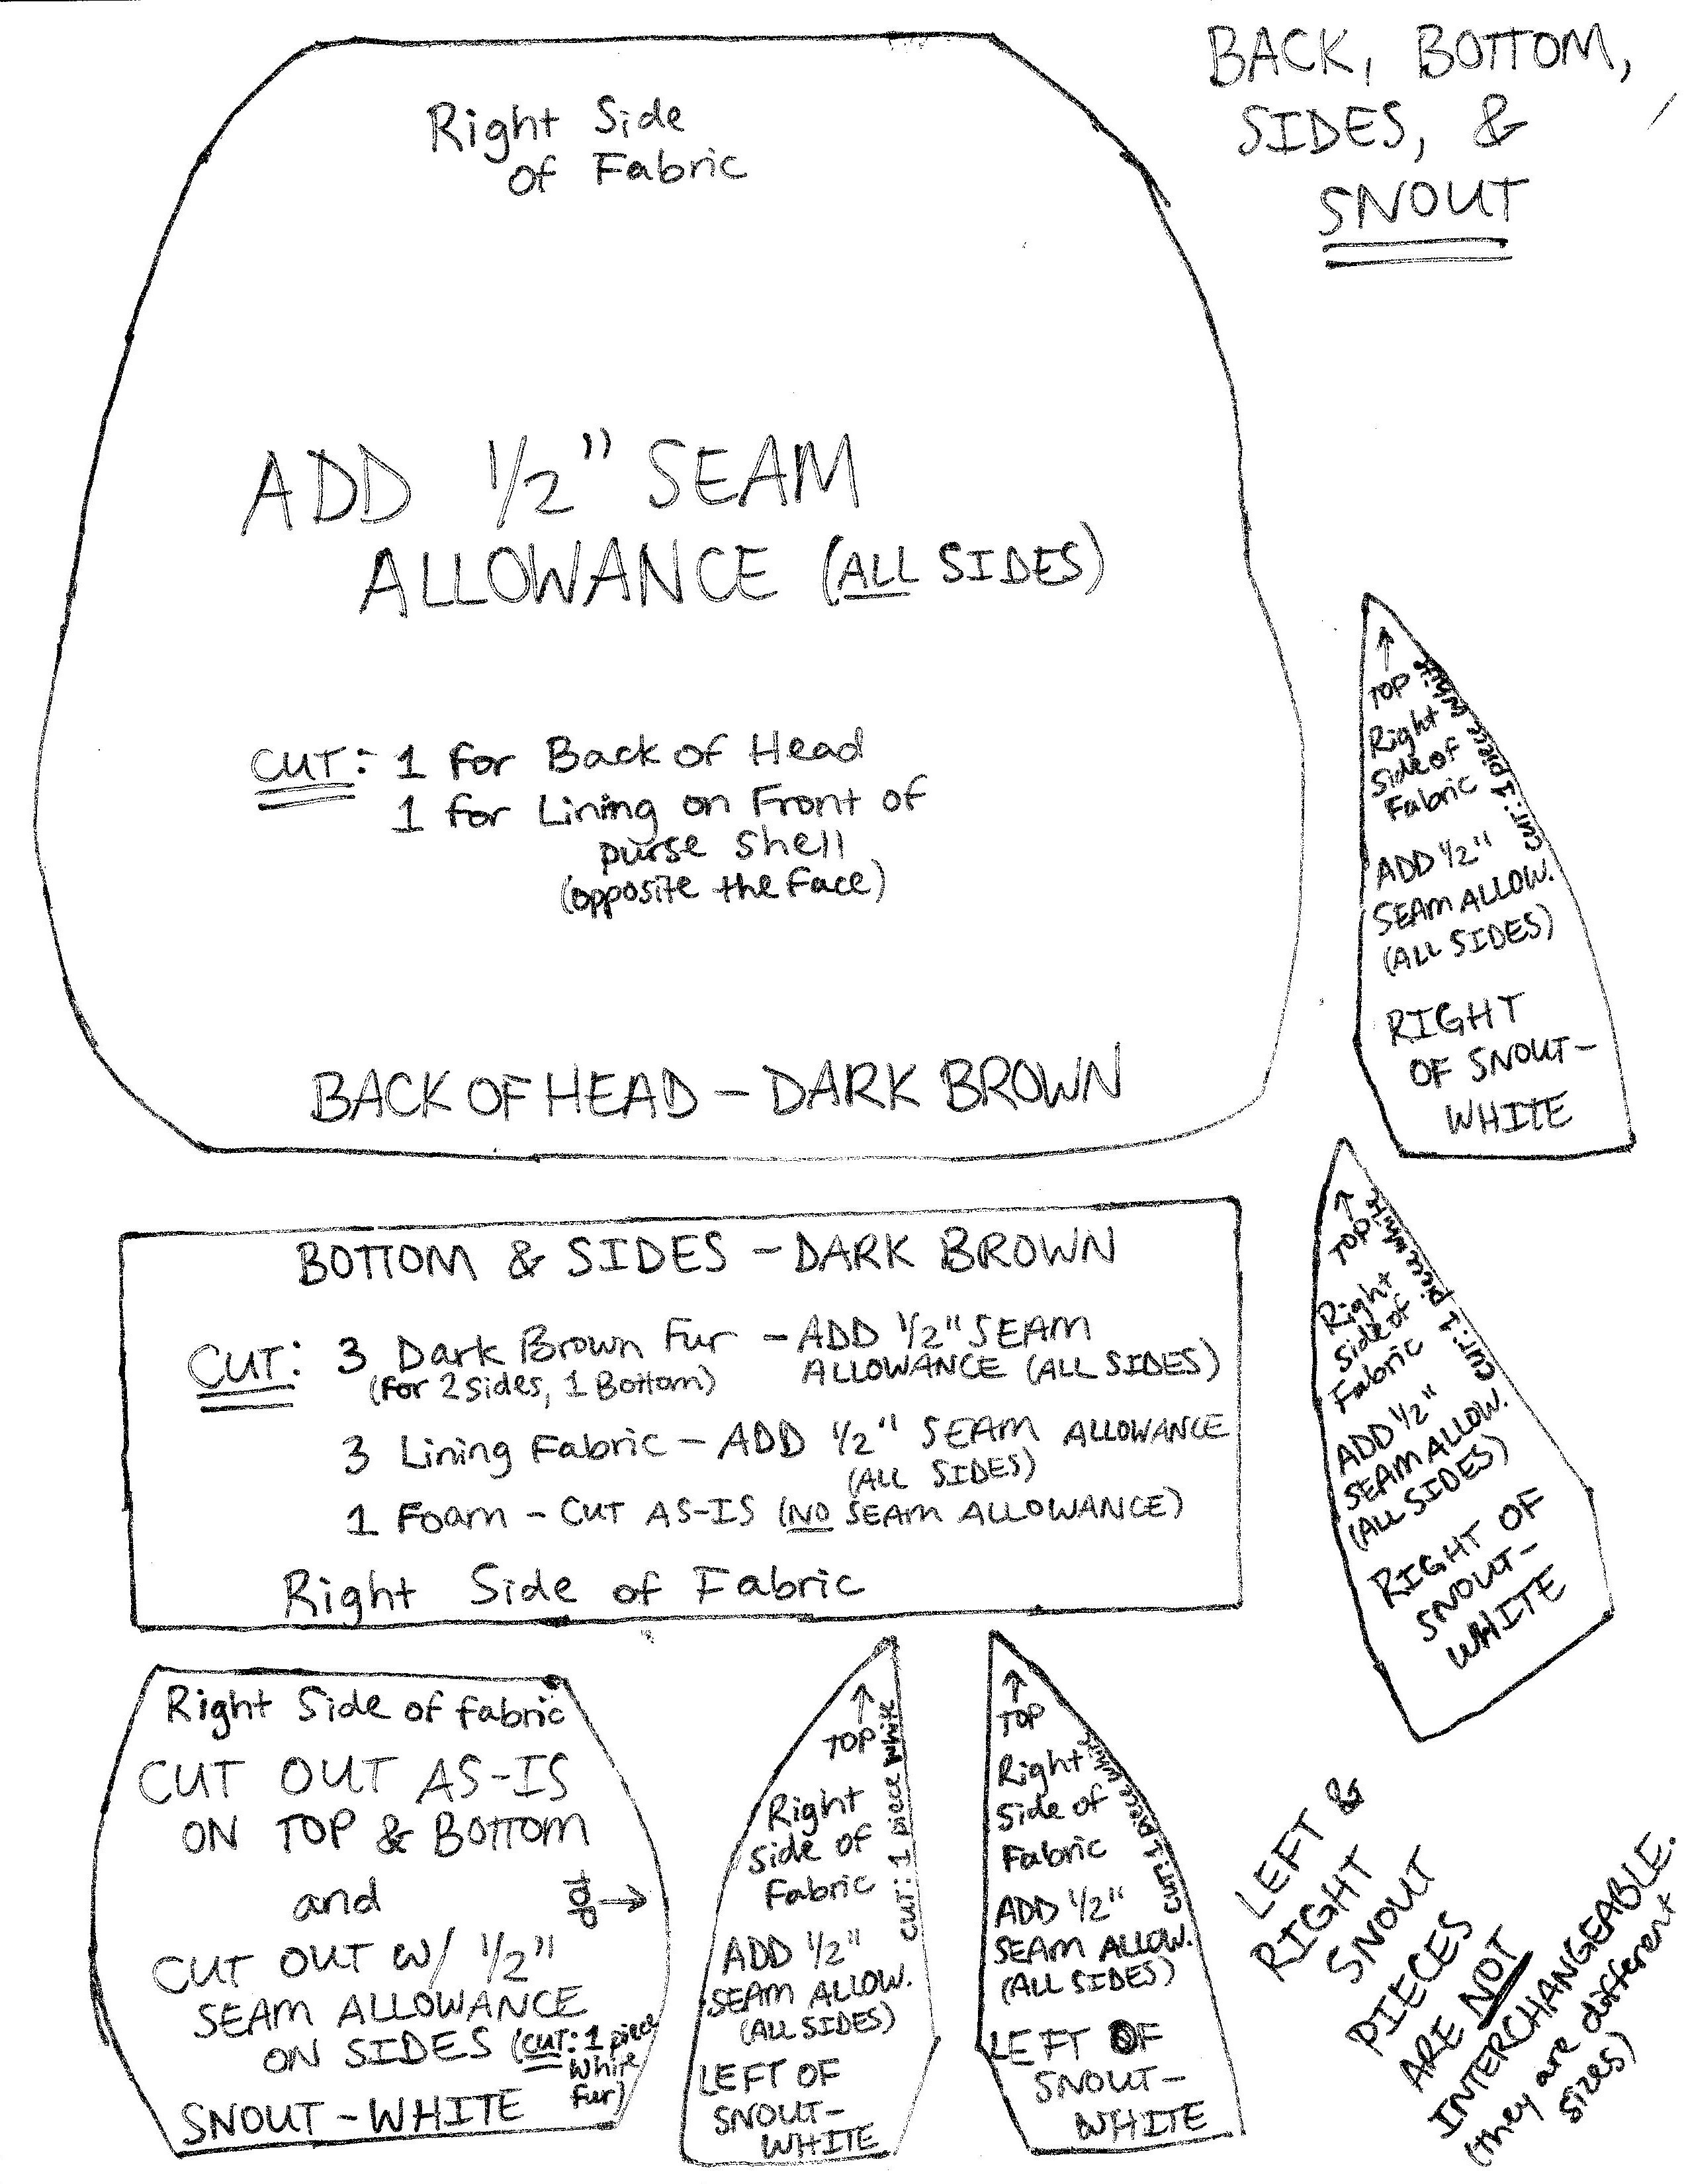 BACK, BOTTOM,
SIDES, &
SNOUT
Right Side
of Fabric
ADD 1/2" SEAM
ALLOWANCE (ALL SIDES)
CUT: 1 for Back of Head
1 for Lining on Front of
purse shell
(opposite the Face)
BACK OF HEAD - DARK BROWN
↑
TOP
Right
Side of
Fabric
CUT: 1 piece White
ADD 1/2"
SEAM ALLOW.
(ALL SIDES)
RIGHT
OF SNOUT-
WHITE
BOTTOM & SIDES - DARK BROWN
CUT: 3 Dark Brown Fur - ADD 1/2" SEAM
(for 2 Sides, 1 Bottom) ALLOWANCE (ALL SIDES)
3 Lining Fabric - ADD 1/2" SEAM ALLOWANCE
(ALL SIDES)
1 Foam - CUT AS-IS (NO SEAM ALLOWANCE)
Right Side of Fabric
↑
TOP
Right
Side of
Fabric
CUT: 1 piece White
ADD 1/2"
SEAM ALLOW.
(ALL SIDES)
RIGHT OF
SNOUT-
WHITE
Right Side of fabric
CUT OUT AS-IS
ON TOP & BOTTOM
and
top →
CUT OUT W/ 1/2"
SEAM ALLOWANCE
ON SIDES (CUT: 1 piece
White
fur)
SNOUT - WHITE
↑
TOP
Right
Side of
Fabric
CUT: 1 piece White
ADD 1/2"
SEAM ALLOW.
(ALL SIDES)
LEFT OF
SNOUT-
WHITE
↑
TOP
Right
Side of
Fabric
CUT: 1 piece White
ADD 1/2"
SEAM ALLOW.
(ALL SIDES)
LEFT OF
SNOUT-
WHITE
LEFT &
RIGHT
SNOUT
PIECES
ARE NOT
INTERCHANGEABLE.
(they are different
sizes)